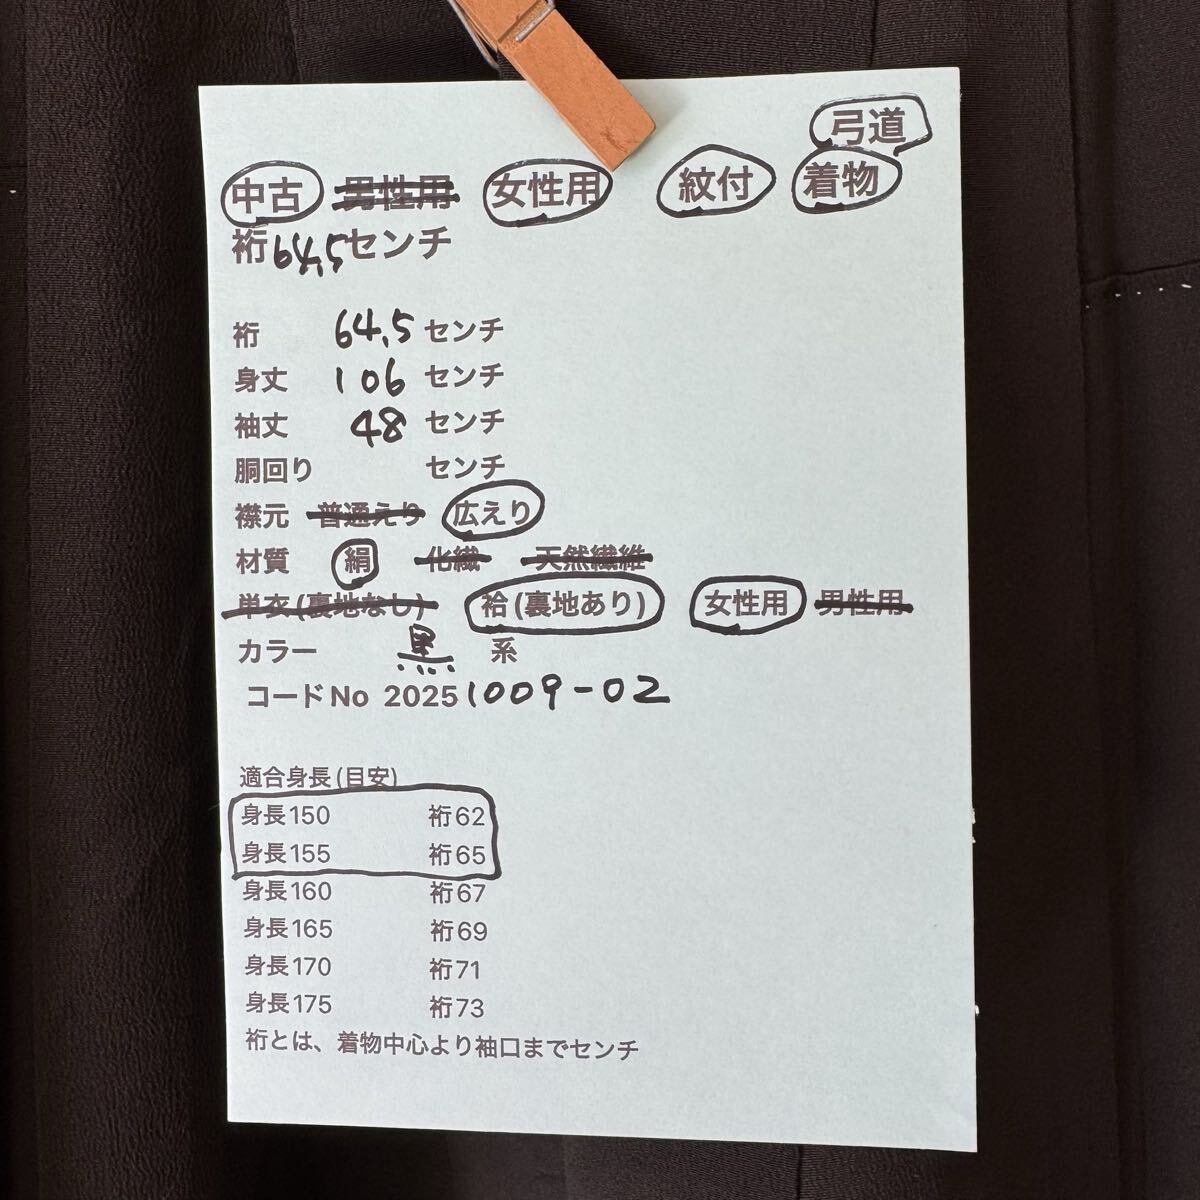 弓道
中古 男性用 女性用 紋付 着物
裄64.5センチ
裄 64.5 センチ
身丈 106 センチ
袖丈 48 センチ
胴回り センチ
襟元 普通えり 広えり
材質 絹 化繊 天然繊維
単衣(裏地なし) 袷(裏地あり) 女性用 男性用
カラー 黒 系
コードNo 20251009-02
適合身長(目安)
身長150 裄62
身長155 裄65
身長160 裄67
身長165 裄69
身長170 裄71
身長175 裄73
裄とは、着物中心より袖口までセンチ